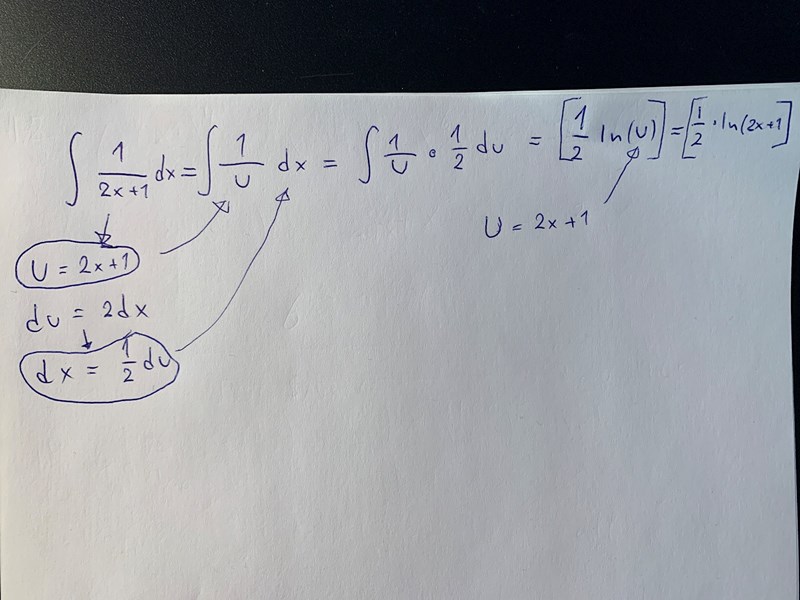 ∫ 1/(2x+1) dx = ∫ 1/U dx = ∫ 1/U • 1/2 du = [1/2 ln(U)] = [1/2 • ln(2x+1]
U = 2x+1
U = 2x+1
du = 2dx
dx = 1/2 du